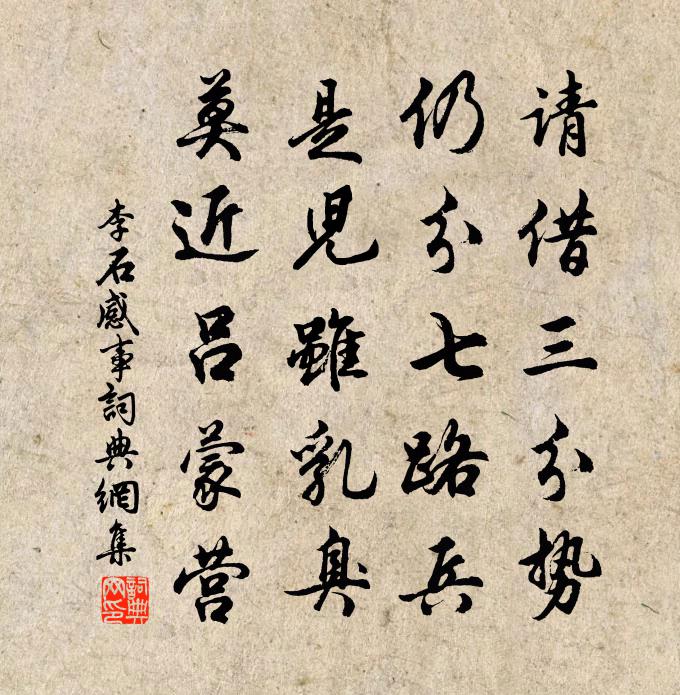 请借三分势
仍分七路兵
是児雖乳臭
莫近吕蒙营
李石感事詞典網集
詞典